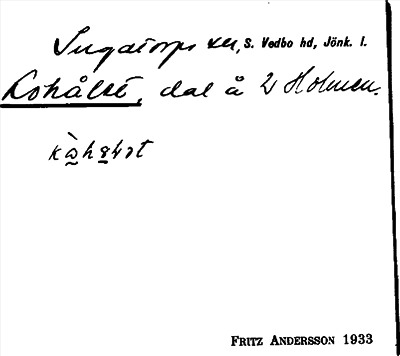 Ingatorps sn, S. Vedbo hd, Jönk. l.
Kohålet, dal å 2 Holmen.
FRITZ ANDERSSON 1933